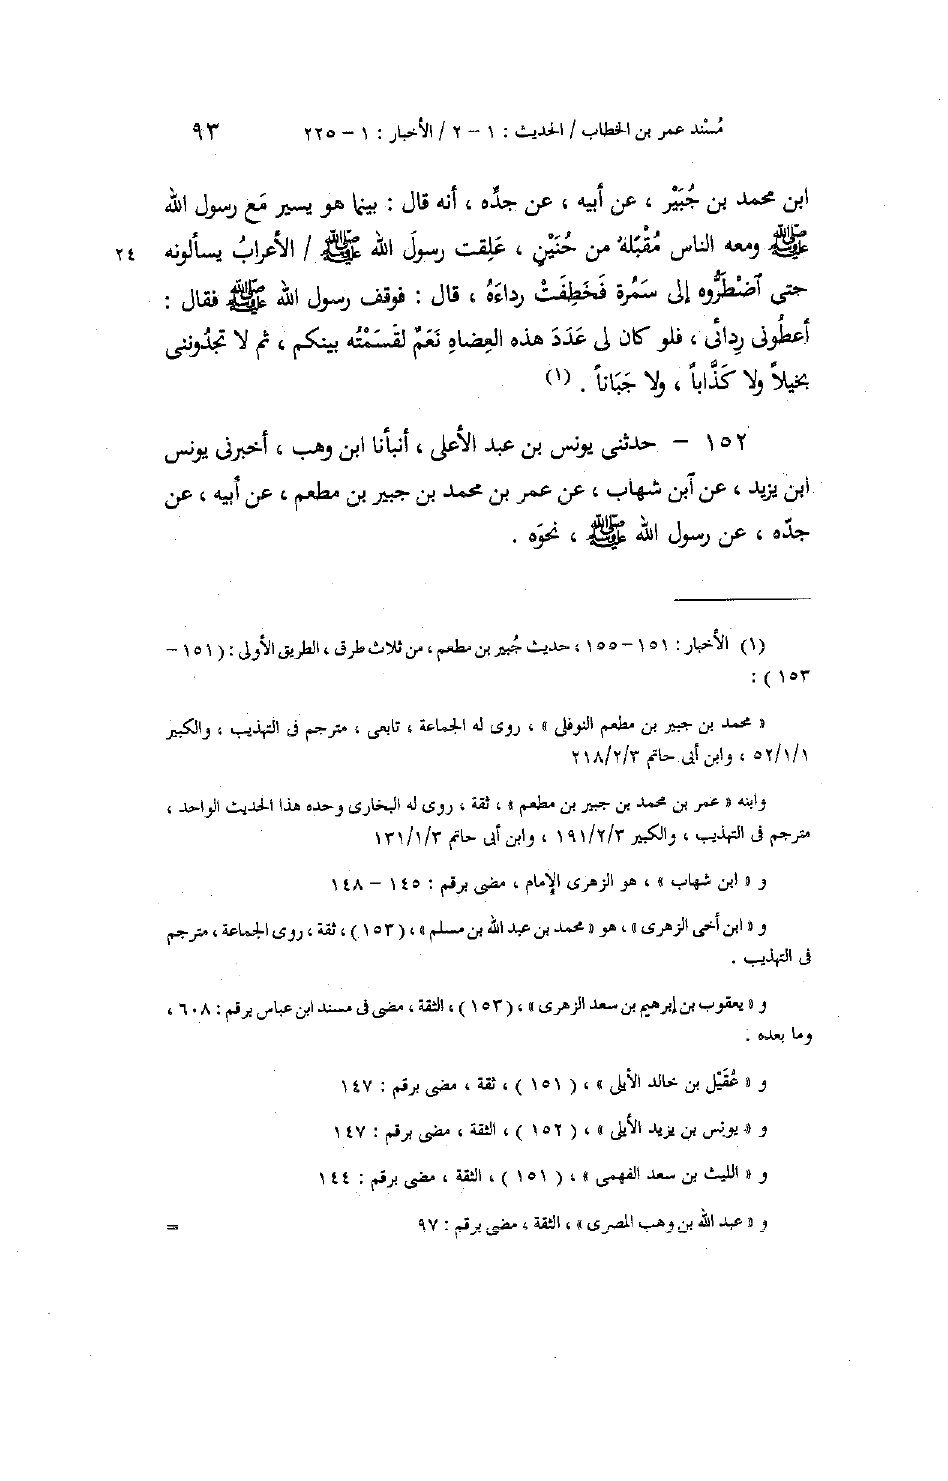 مُسْند عمر بن الخطاب / الحديث : ١ - ٢ / الأخبار : ١ - ٢٢٥ ٩٣
ابن محمد بن جُبَيْر ، عن أبيه ، عن جدِّه ، أنه قال : بينما هو يسير مَع رسول الله
ﷺ ومعه الناس مُقْبَلَهُ من حُنَيْنٍ ، عَلِقت رسولَ الله ﷺ / الأعرابُ يسألونه ٢٤
حتى آضْطَرُّوه إلى سَمُرة فَخَطِفَتْ رداءَهُ ، قال : فوقف رسول الله ﷺ فقال :
أعطُونى رِدائى ، فلو كان لى عَدَدَ هذه العِضاهِ نَعَمٌ لقَسَمْتُه بينكم ، ثم لا تجدُوننى
بخيلاً ولا كَذَّاباً ، ولا جَبَاناً . (١)
١٥٢ - حدثنى يونس بن عبد الأعلى ، أنبأنا ابن وهب ، أخبرنى يونس
ابن يزيد ، عن آبن شهاب ، عن عمر بن محمد بن جبير بن مطعم ، عن أبيه ، عن
جدّه ، عن رسول الله ﷺ ، نحوَه .
(١) الأخبار : ١٥١ - ١٥٥ ، حديث جُبير بن مطعم ، من ثلاث طرق ، الطريق الأولى : (١٥١ -
١٥٣ ) :
« محمد بن جبير بن مطعم النوفلى » ، روى له الجماعة ، تابعى ، مترجم فى التهذيب ، والكبير
٥٢/١/١ ، وابن أبى حاتم ٢١٨/٢/٣
وابنه « عمر بن محمد بن جبير بن مطعم » ، ثقة ، روى له البخارى وحده هذا الحديث الواحد ،
مترجم فى التهذيب ، والكبير ١٩١/٢/٣ ، وابن أبى حاتم ١٣١/١/٣
و « ابن شهاب » ، هو الزهرى الإمام ، مضى برقم : ١٤٥ - ١٤٨
و « ابن أخى الزهرى » ، هو « محمد بن عبد الله بن مسلم » ، (١٥٣) ، ثقة ، روى الجماعة ، مترجم
فى التهذيب .
و « يعقوب بن إبرهيم بن سعد الزهرى » ، (١٥٣) ، الثقة ، مضى فى مسند ابن عباس برقم : ٦٠٨ ،
وما بعده .
و « عُقَيْل بن خالد الأيلى » ، ( ١٥١ ) ، ثقة ، مضى برقم : ١٤٧
و « يونس بن يزيد الأيلى » ، ( ١٥٢ ) ، الثقة ، مضى برقم : ١٤٧
و « الليث بن سعد الفهمى » ، ( ١٥١ ) ، الثقة ، مضى برقم : ١٤٤
و « عبد الله بن وهب المصرى » ، الثقة ، مضى برقم : ٩٧ =